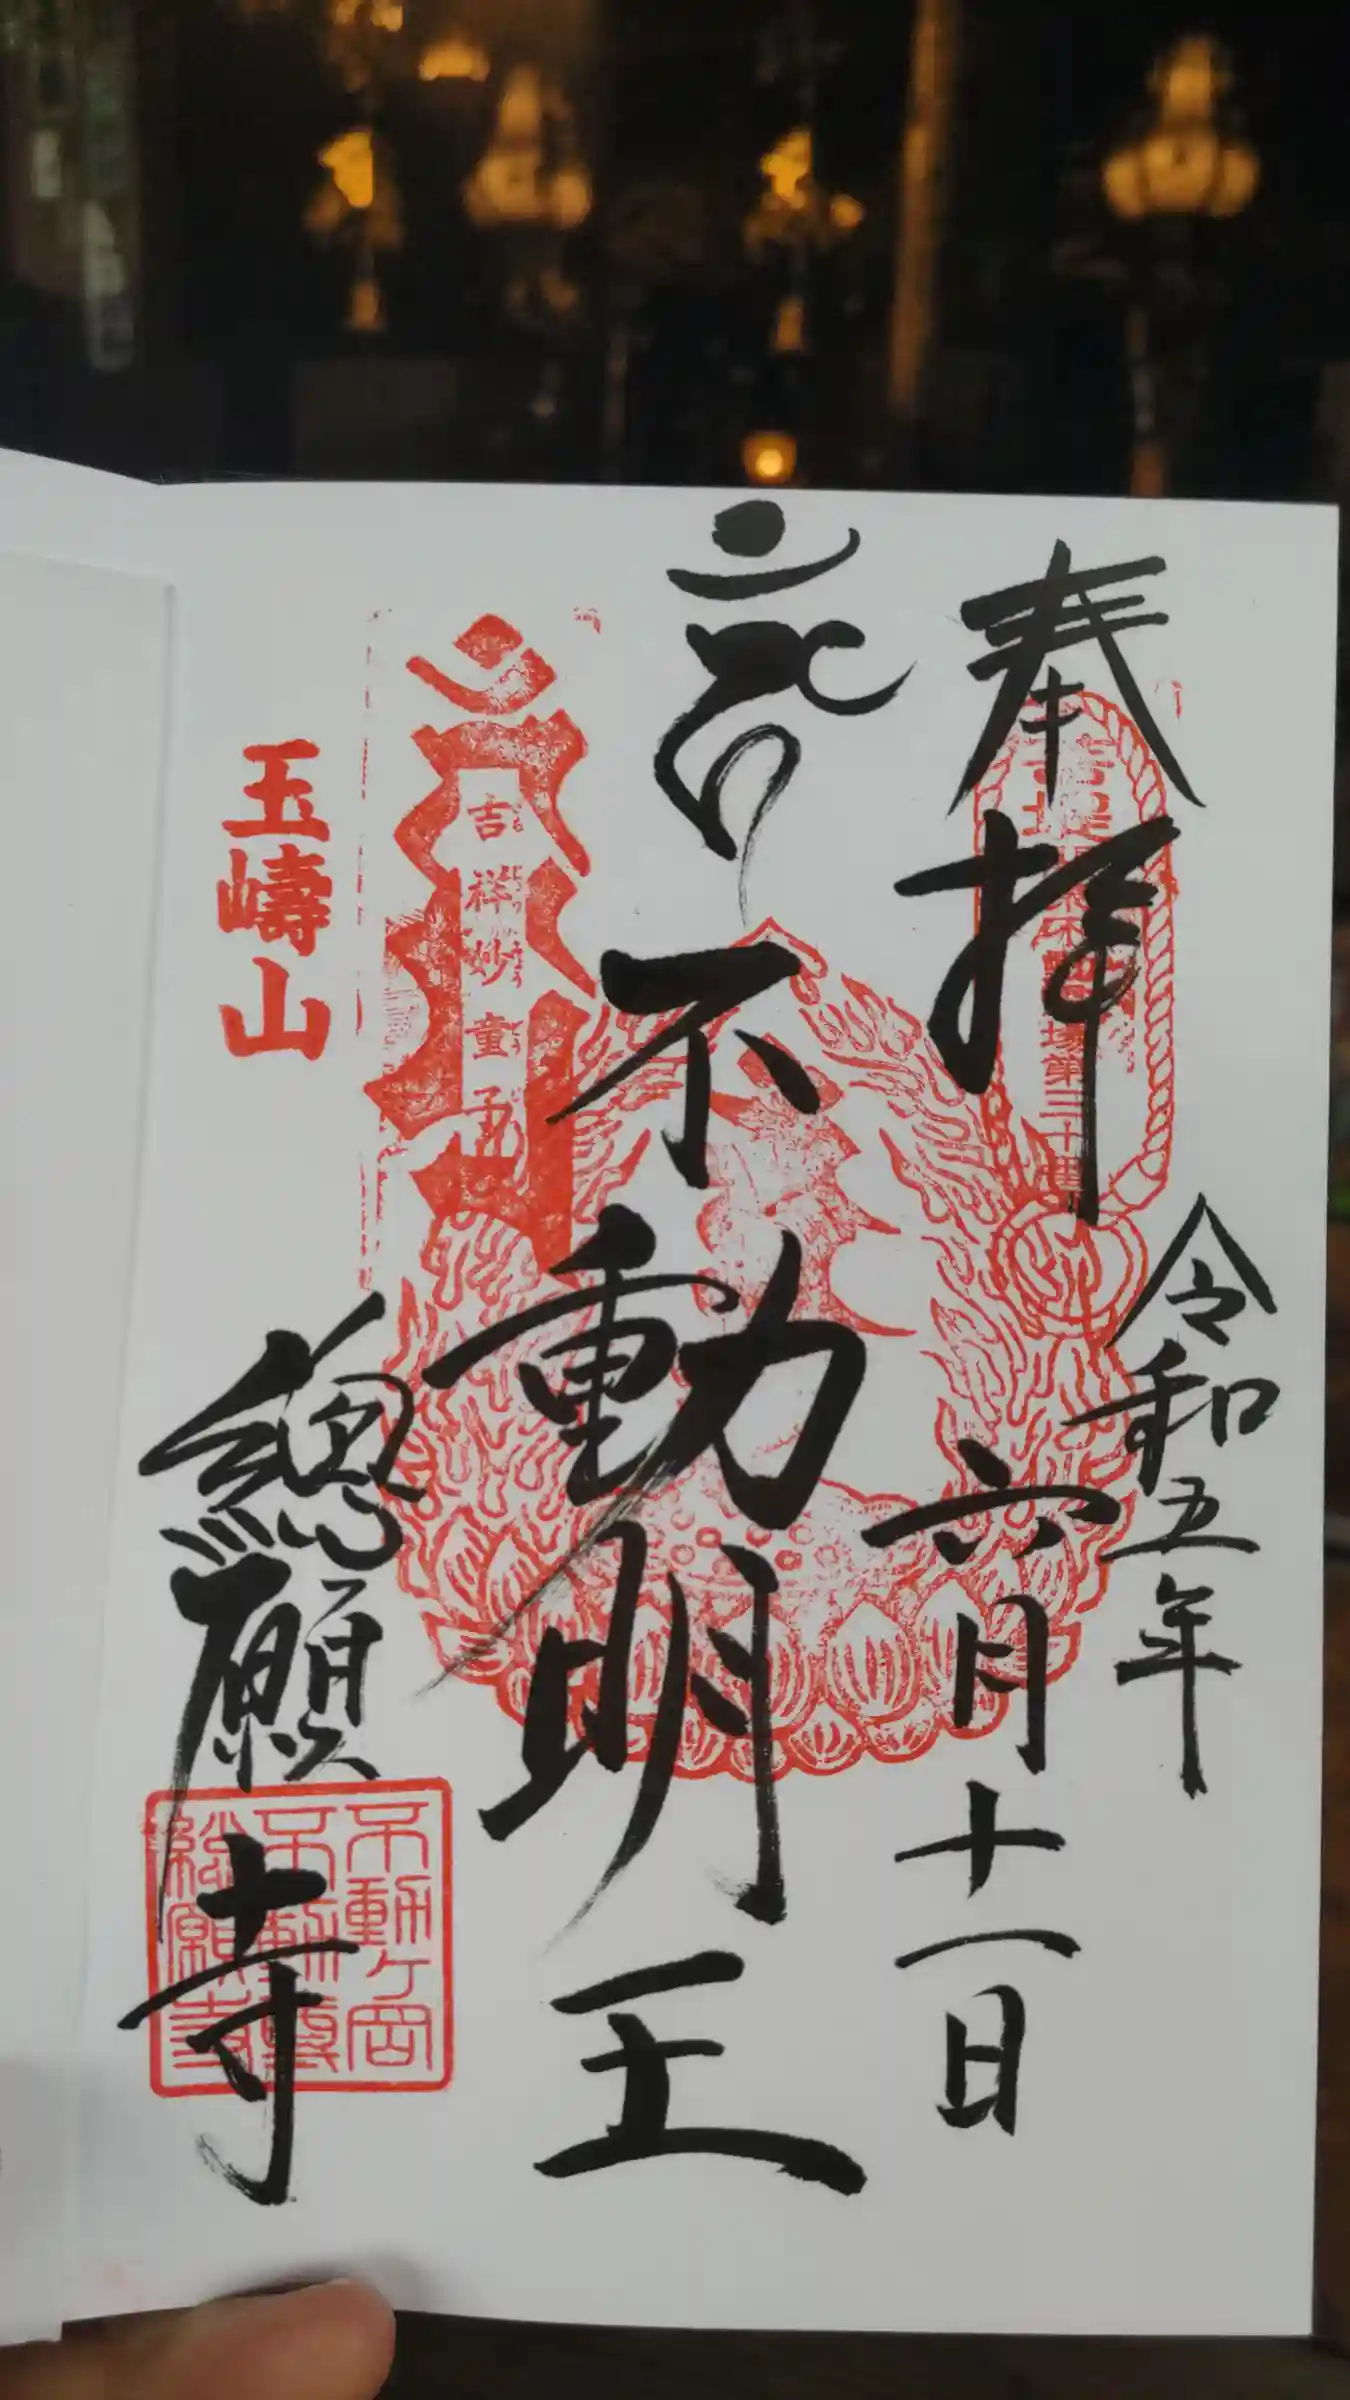 奉拝
令和五年
六月十一日
不動明王
吉祥妙童
玉嶹山
總願寺
不動ヶ岡
不動尊
総願寺